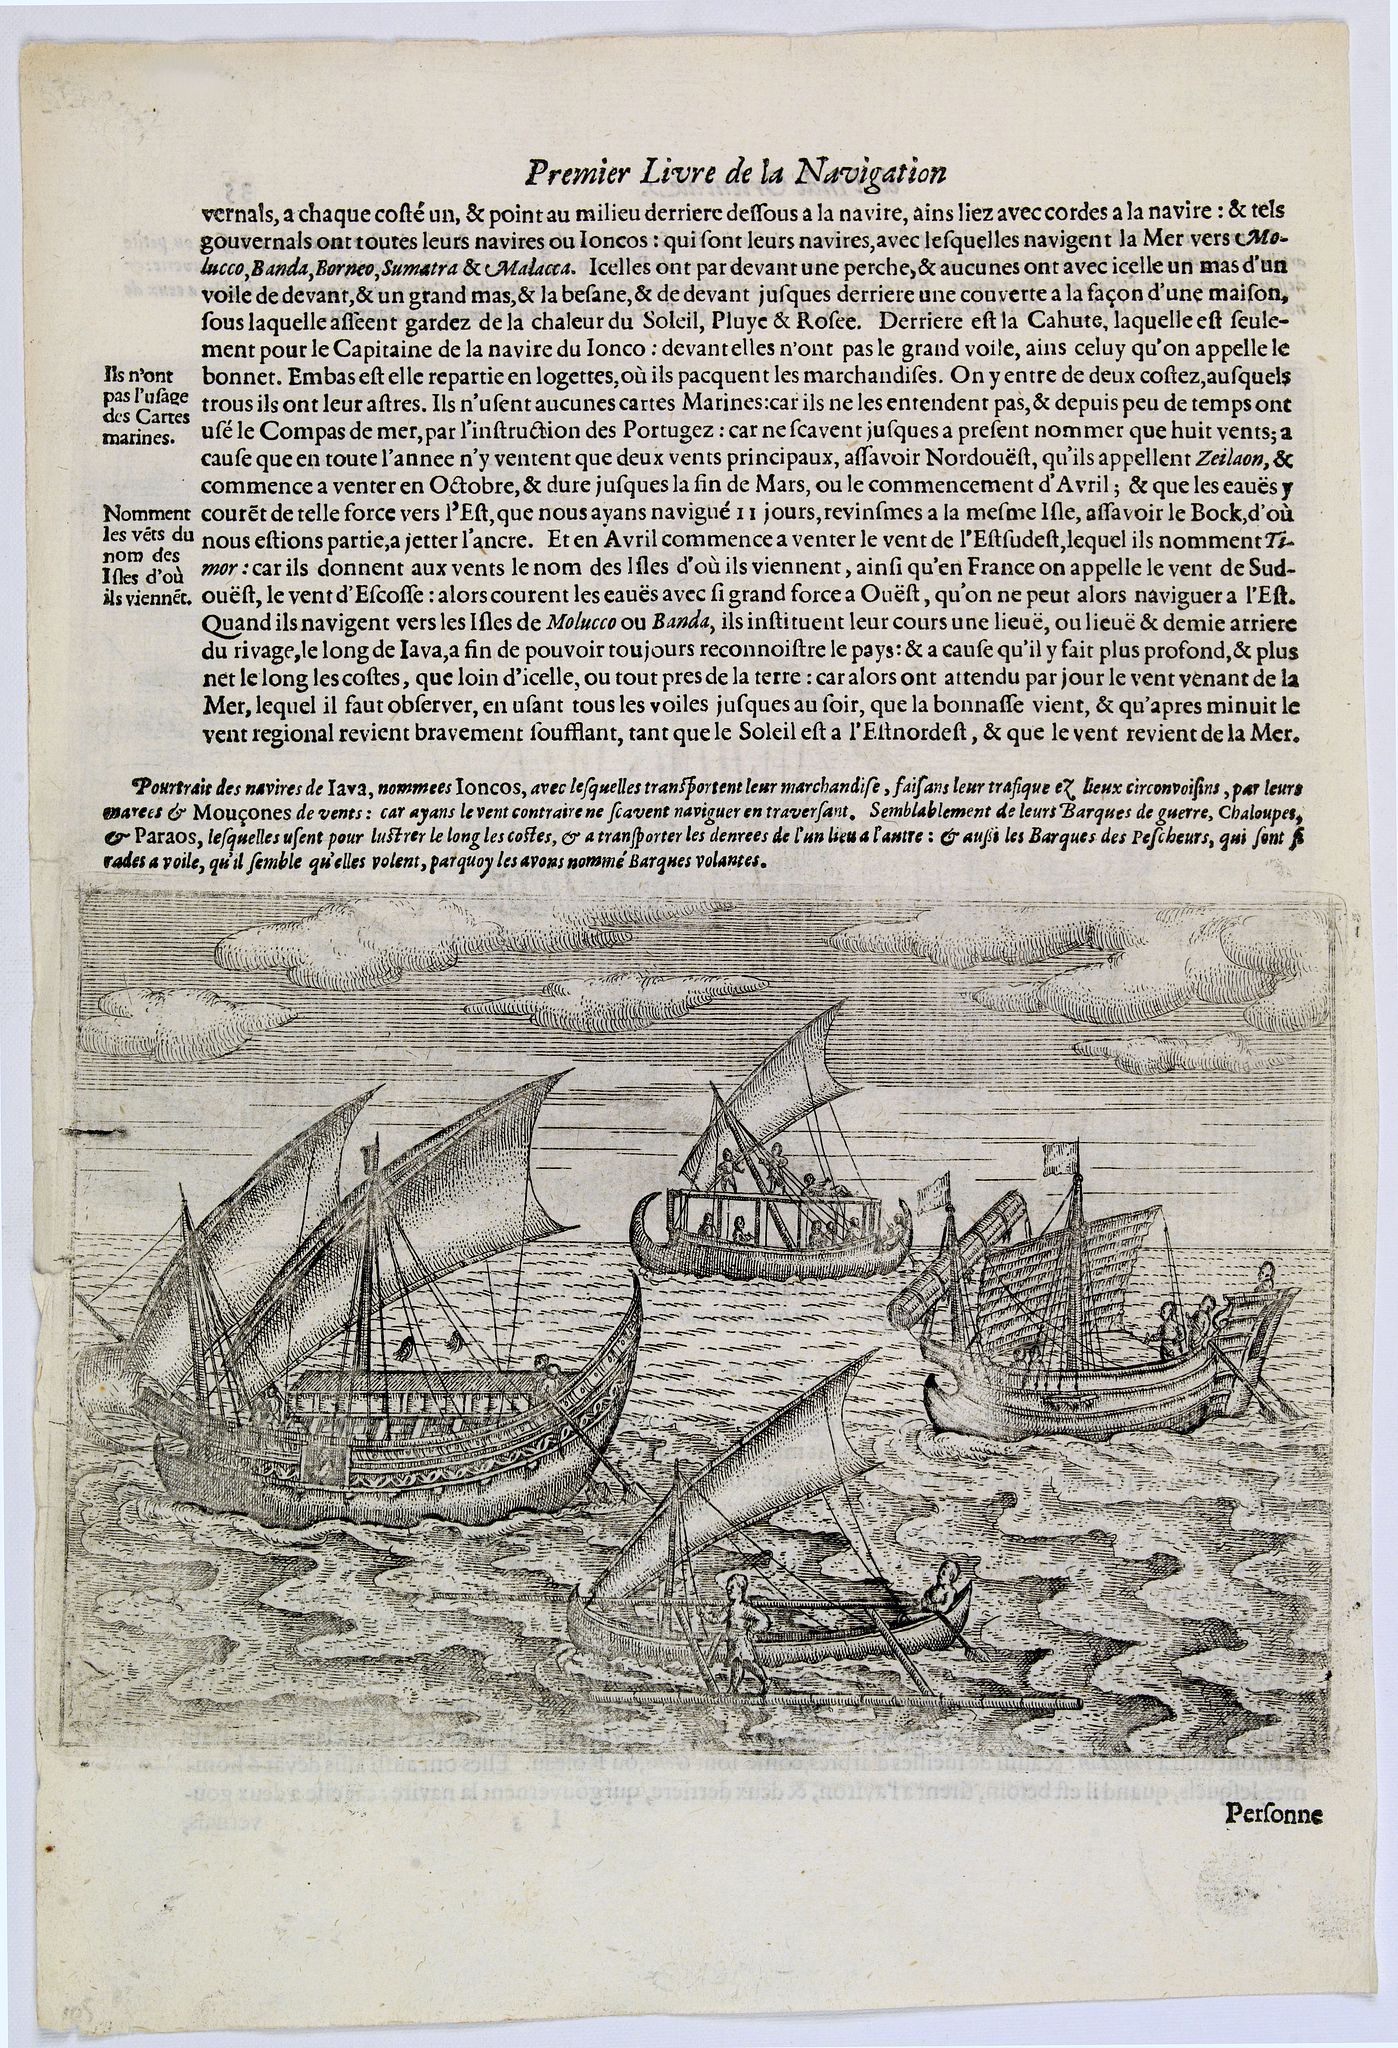 Premier Livre de la Navigation
vernals, a chaque coſté un, & point au milieu derriere deſſous a la navire, ains liez avec cordes a la navire : & tels
gouvernals ont toutes leurs navires ou Ioncos : qui ſont leurs navires, avec leſquelles navigent la Mer vers Mo-
lucco, Banda, Borneo, Sumatra & Malacca. Icelles ont par devant une perche, & aucunes ont avec icelle un mas d'un
voile de devant, & un grand mas, & la beſane, & de devant juſques derriere une couverte a la façon d'une maiſon,
ſous laquelle aſſeent gardez de la chaleur du Soleil, Pluye & Roſee. Derriere eſt la Cahute, laquelle eſt ſeule-
ment pour le Capitaine de la navire du Ionco : devant elles n'ont pas le grand voile, ains celuy qu'on appelle le
bonnet. Embas eſt elle repartie en logettes, où ils pacquent les marchandiſes. On y entre de deux coſtez, auſquels
trous ils ont leur aſtres. Ils n'uſent aucunes cartes Marines: car ils ne les entendent pas, & depuis peu de temps ont
uſé le Compas de mer, par l'inſtruction des Portugez : car ne ſcavent juſques a preſent nommer que huit vents; a
cauſe que en toute l'annee n'y ventent que deux vents principaux, aſſavoir Nordouëſt, qu'ils appellent Zeilaon, &
commence a venter en Octobre, & dure juſques la fin de Mars, ou le commencement d'Avril ; & que les eauës y
courẽt de telle force vers l'Eſt, que nous ayans navigué 11 jours, revinſmes a la meſme Iſle, aſſavoir le Bock, d'où
nous eſtions partie, a jetter l'ancre. Et en Avril commence a venter le vent de l'Eſtſudeſt, lequel ils nomment Ti-
mor : car ils donnent aux vents le nom des Iſles d'où ils viennent, ainſi qu'en France on appelle le vent de Sud-
ouëſt, le vent d'Eſcoſſe : alors courent les eauës avec ſi grand force a Ouëſt, qu'on ne peut alors naviguer a l'Eſt.
Quand ils navigent vers les Iſles de Molucco ou Banda, ils inſtituent leur cours une lieuë, ou lieuë & demie arriere
du rivage, le long de Iava, a fin de pouvoir toujours reconnoiſtre le pays: & a cauſe qu'il y fait plus profond, & plus
net le long les coſtes, que loin d'icelle, ou tout pres de la terre : car alors ont attendu par jour le vent venant de la
Mer, lequel il faut obſerver, en uſant tous les voiles juſques au ſoir, que la bonnaſſe vient, & qu'apres minuit le
vent regional revient bravement ſoufflant, tant que le Soleil eſt a l'Eſtnordeſt, & que le vent revient de la Mer.
Ils n'ont
pas l'uſage
des Cartes
marines.
Nomment
les vẽts du
nom des
Iſles d'où
ils viennẽt.
Pourtrait des navires de Iava, nommees Ioncos, avec leſquelles tranſportent leur marchandiſe, faiſans leur trafique ez lieux circonvoiſins, par leurs
marees & Mouçones de vents : car ayans le vent contraire ne ſcavent naviguer en traverſant. Semblablement de leurs Barques de guerre, Chaloupes,
& Paraos, leſquelles uſent pour luſtrer le long les coſtes, & a tranſporter les denrees de l'un lieu a l'autre : & auſſi les Barques des Peſcheurs, qui ſont ſi
rades a voile, qu'il ſemble qu'elles volent, parquoy les avons nommé Barques volantes.
Perſonne